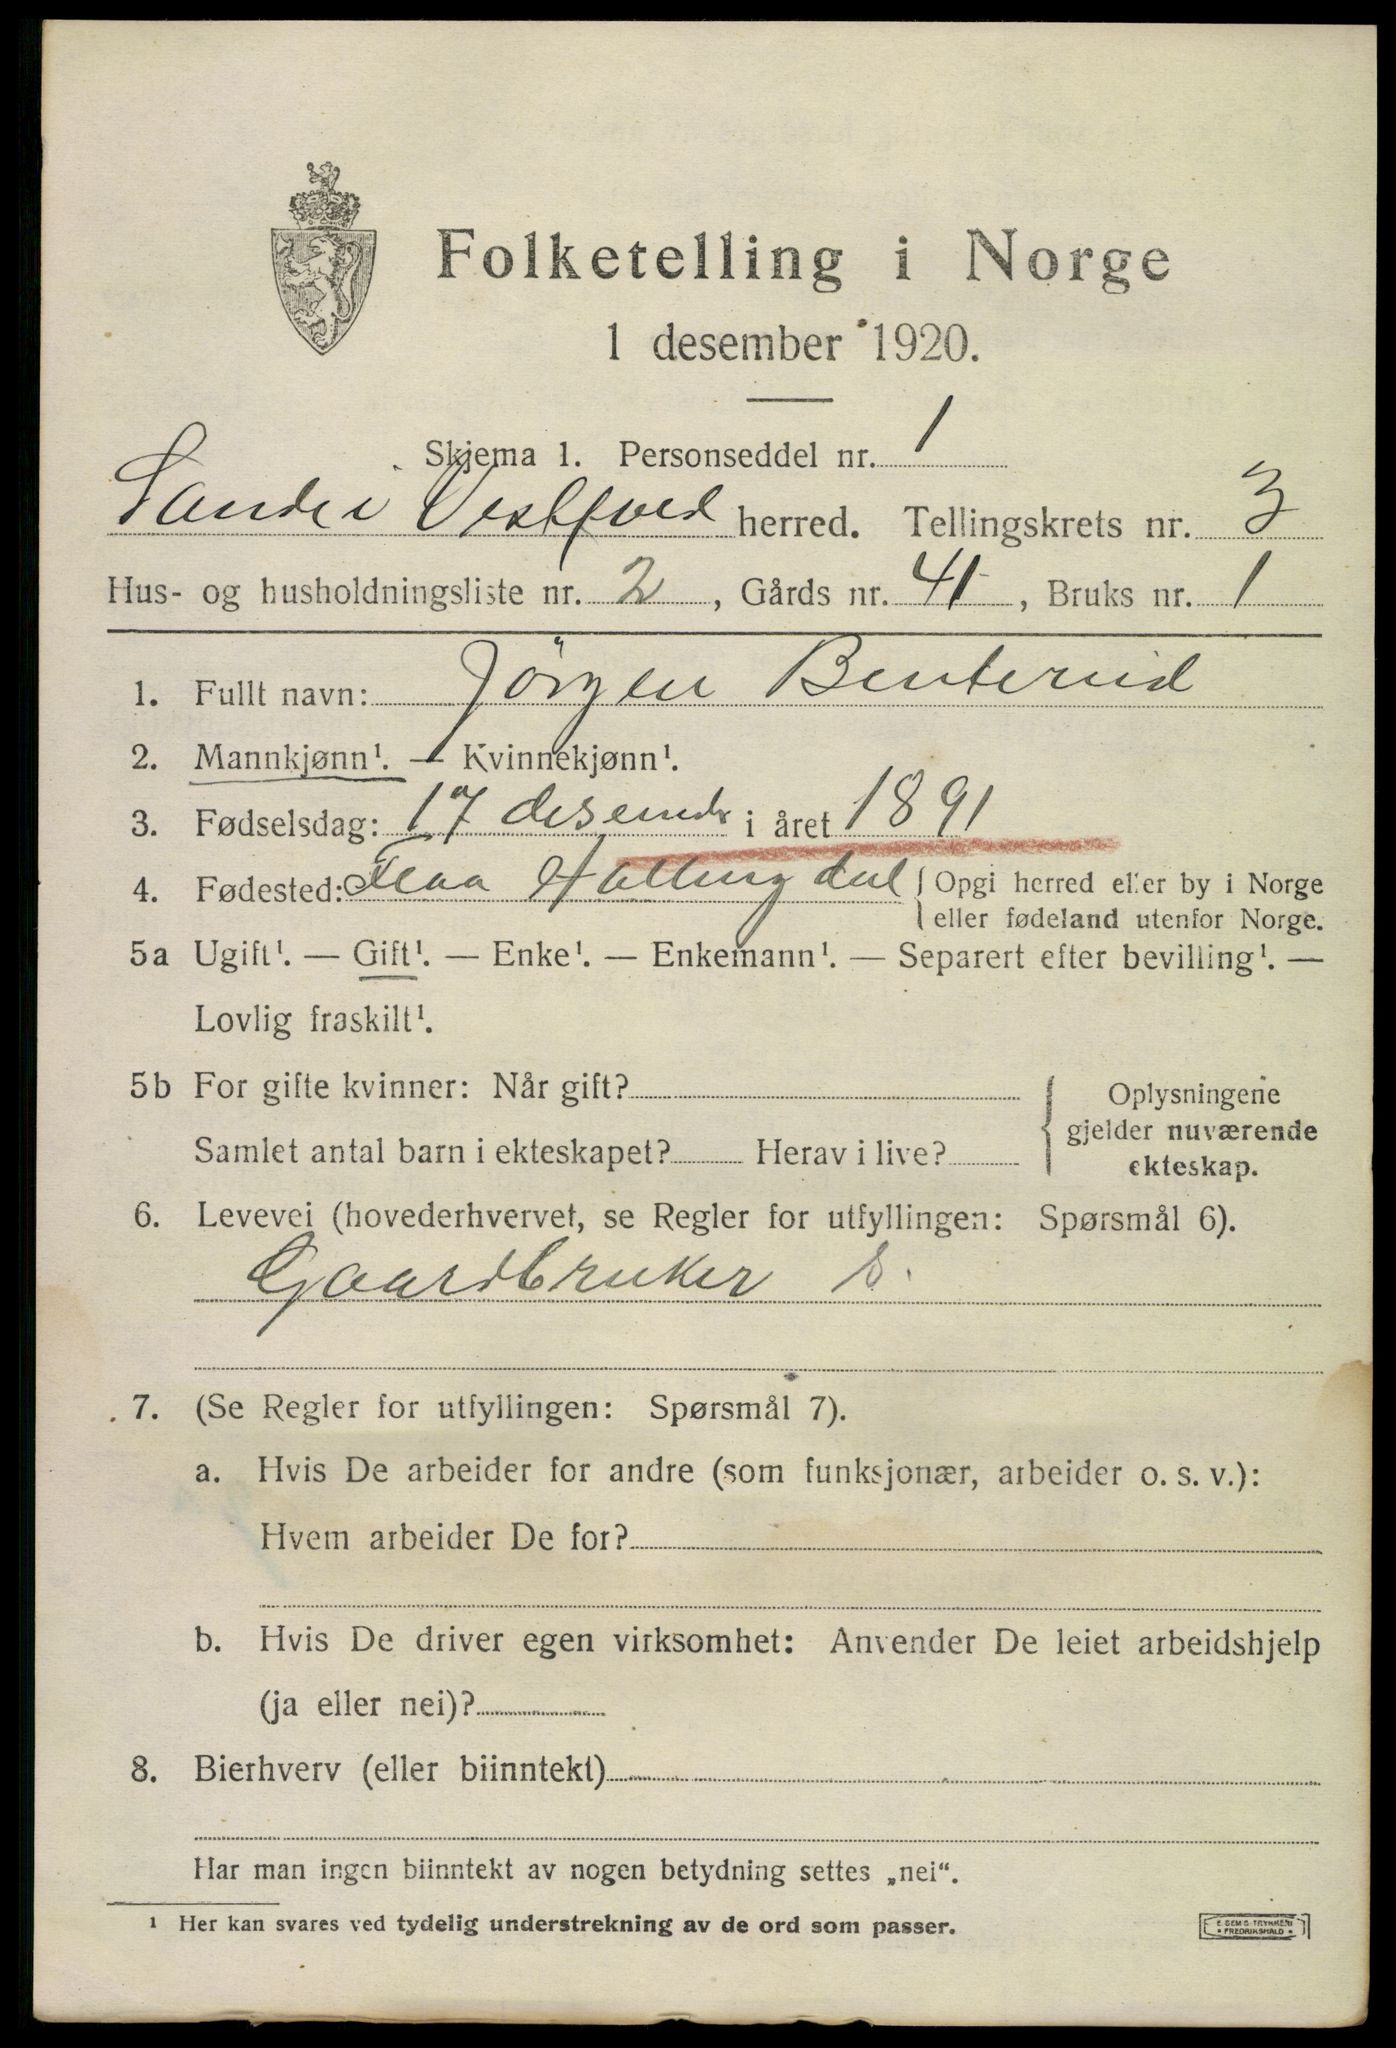 Folketelling i Norge
1 desember 1920.
Skjema 1. Personseddel nr. 1
Sande i Vestfold herred. Tellingskrets nr. 3
Hus- og husholdningsliste nr. 2, Gårds nr. 41, Bruks nr. 1
1. Fullt navn: Jörgen Benterud
2. Mannkjønn¹. — Kvinnekjønn¹.
3. Fødselsdag: 17 desember i året 1891
4. Fødested: Flaa Hallingdal { Opgi herred eller by i Norge
eller fødeland utenfor Norge.
5a Ugift¹. — Gift¹. — Enke¹. — Enkemann¹. — Separert efter bevilling¹. —
Lovlig fraskilt¹.
5b For gifte kvinner: Når gift?
Samlet antal barn i ekteskapet? Herav i live?
{ Oplysningene
gjelder nuværende
ekteskap.
6. Levevei (hovederhvervet, se Regler for utfyllingen: Spørsmål 6).
Gaardbruker s.
7. (Se Regler for utfyllingen: Spørsmål 7).
a. Hvis De arbeider for andre (som funksjonær, arbeider o. s. v.):
Hvem arbeider De for?
b. Hvis De driver egen virksomhet: Anvender De leiet arbeidshjelp
(ja eller nei)?
8. Bierhverv (eller biinntekt)
Har man ingen biinntekt av nogen betydning settes „nei“.
¹ Her kan svares ved tydelig understrekning av de ord som passer.
E. SEM'S TRYKKERI
• FREDRIKSHALD •